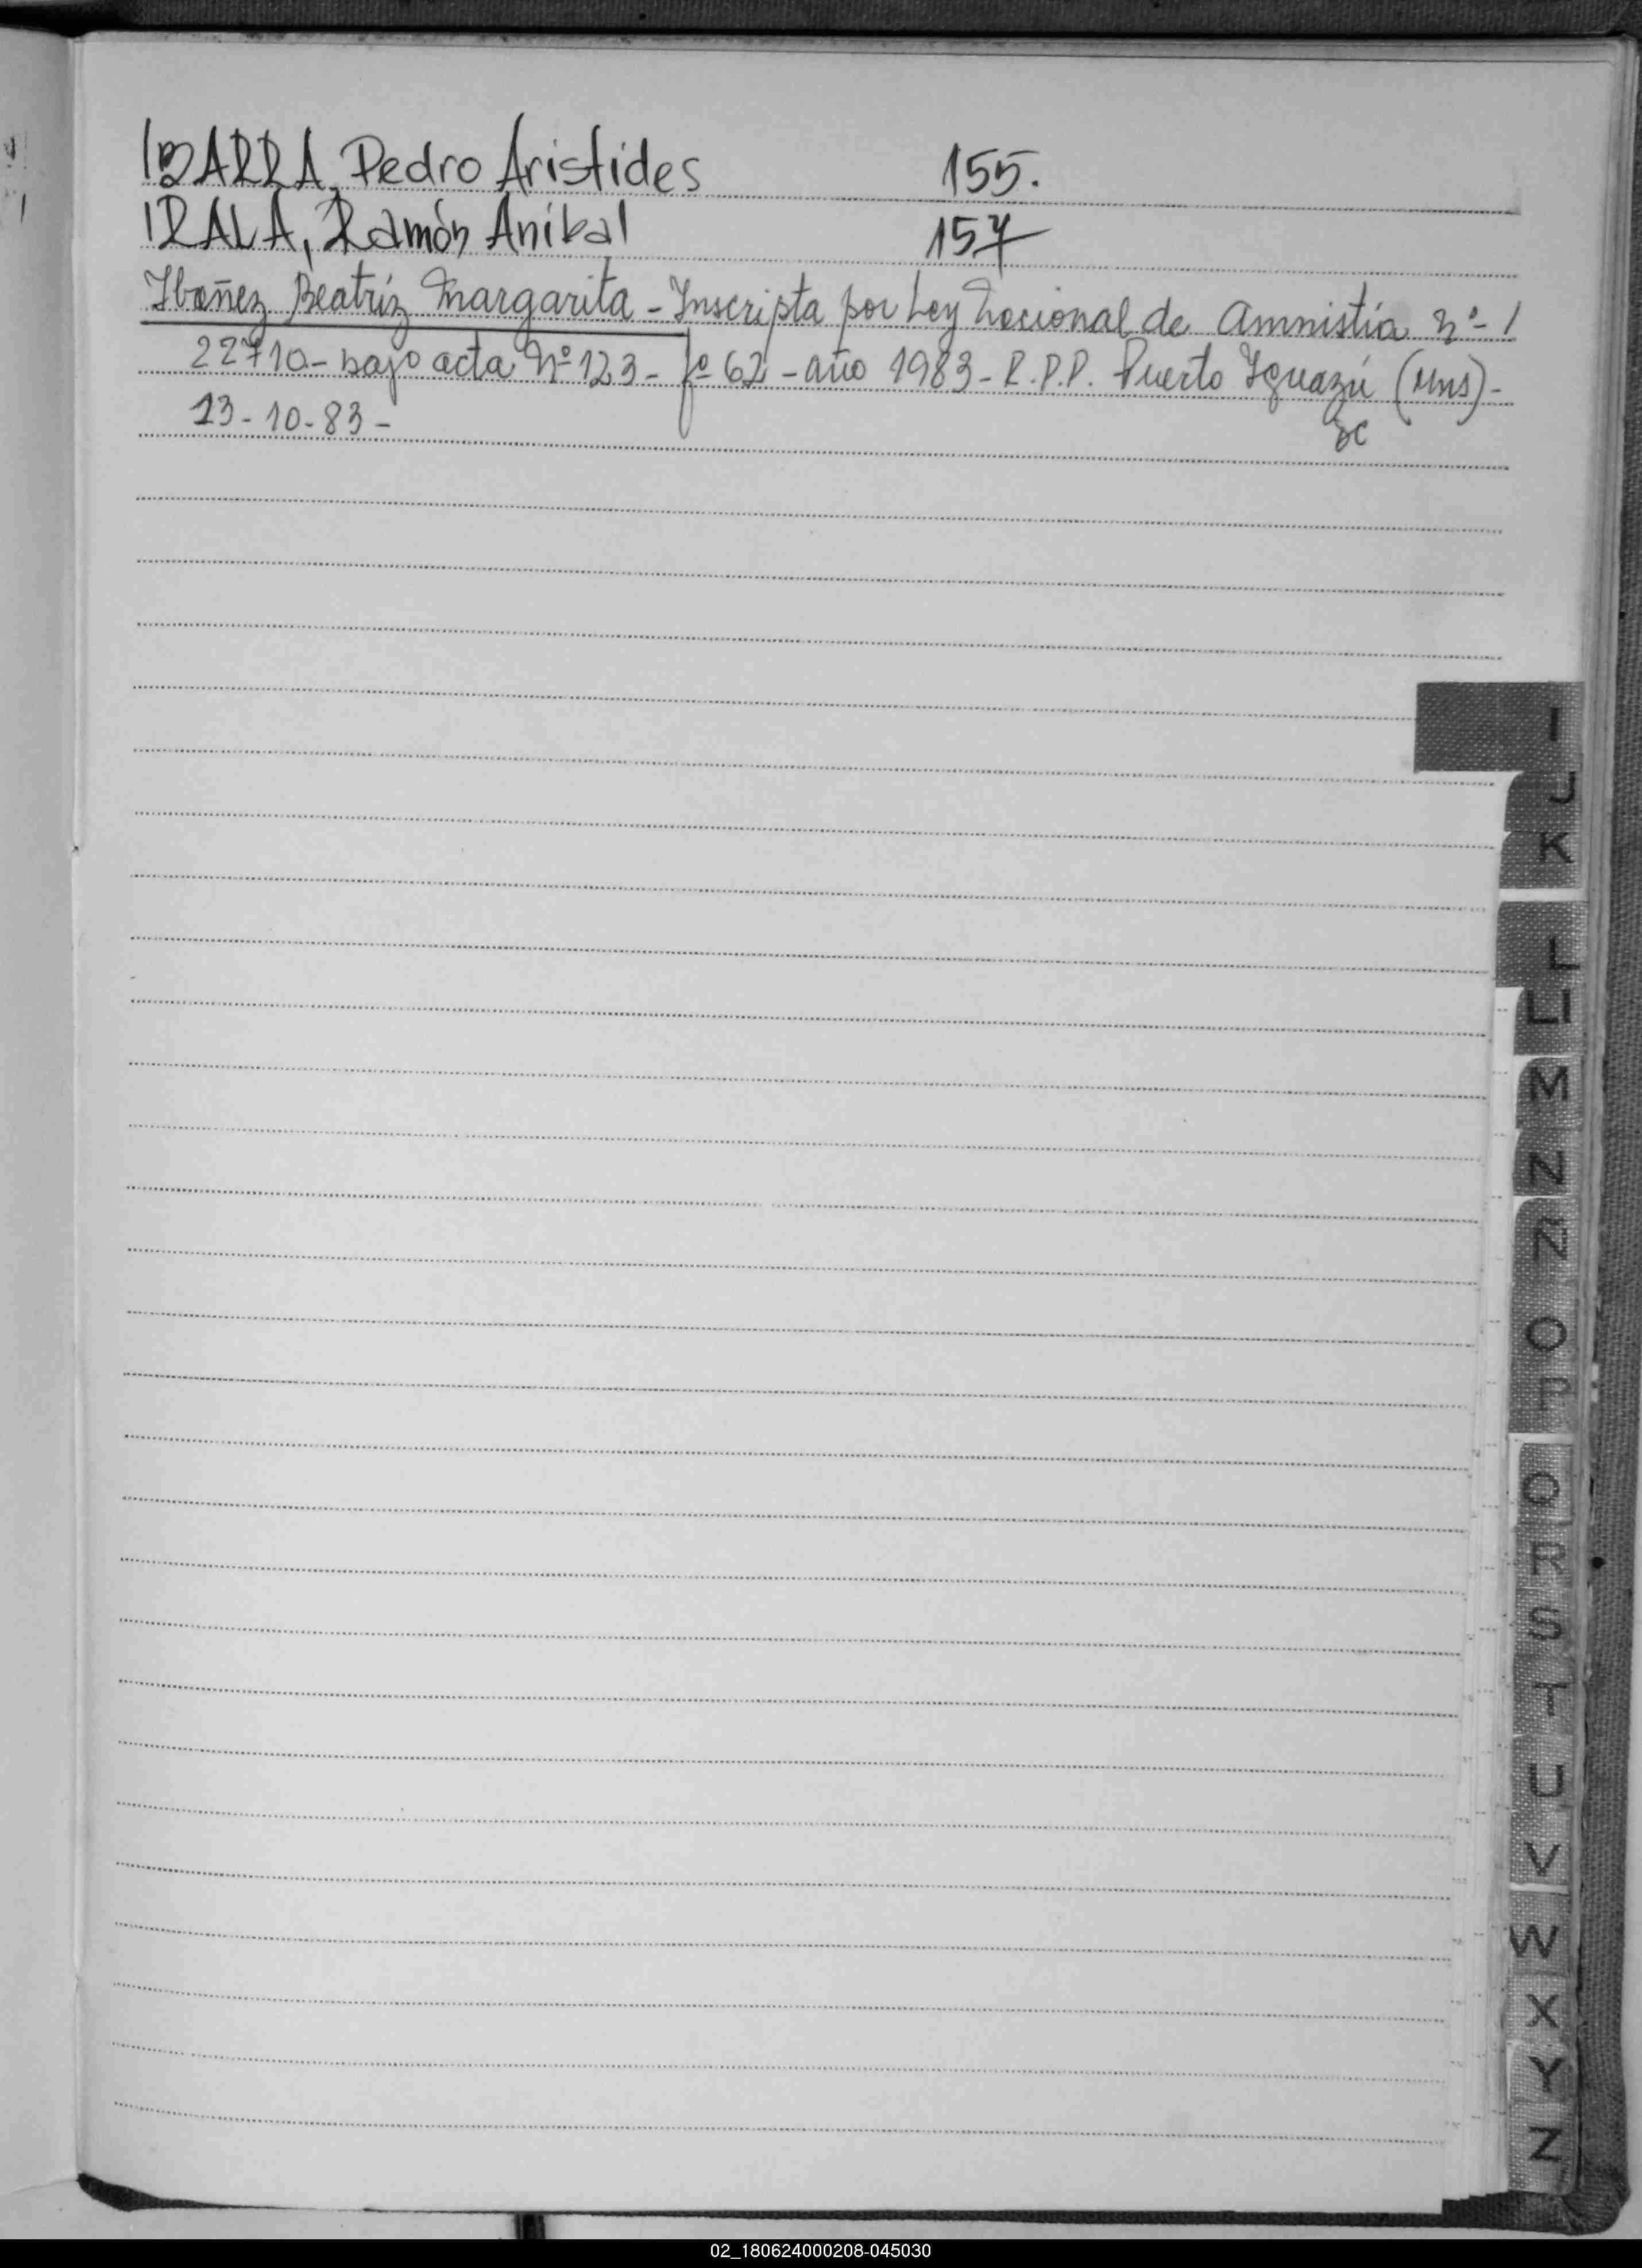 IBARRA, Pedro Aristides 155.
IRALA, Ramón Aníbal 157
Ibañez Beatríz Margarita - Inscripta por Ley Nacional de Amnistía nº- /
22710 - bajo acta Nº 123 - fº 62 - año 1983 - R.P.P. Puerto Iguazú (Mns) -
13-10-83 -
I
J
K
L
Ll
M
N
Ñ
O
P
Q
R
S
T
U
V
W
X
Y
Z
02_180624000208-045030